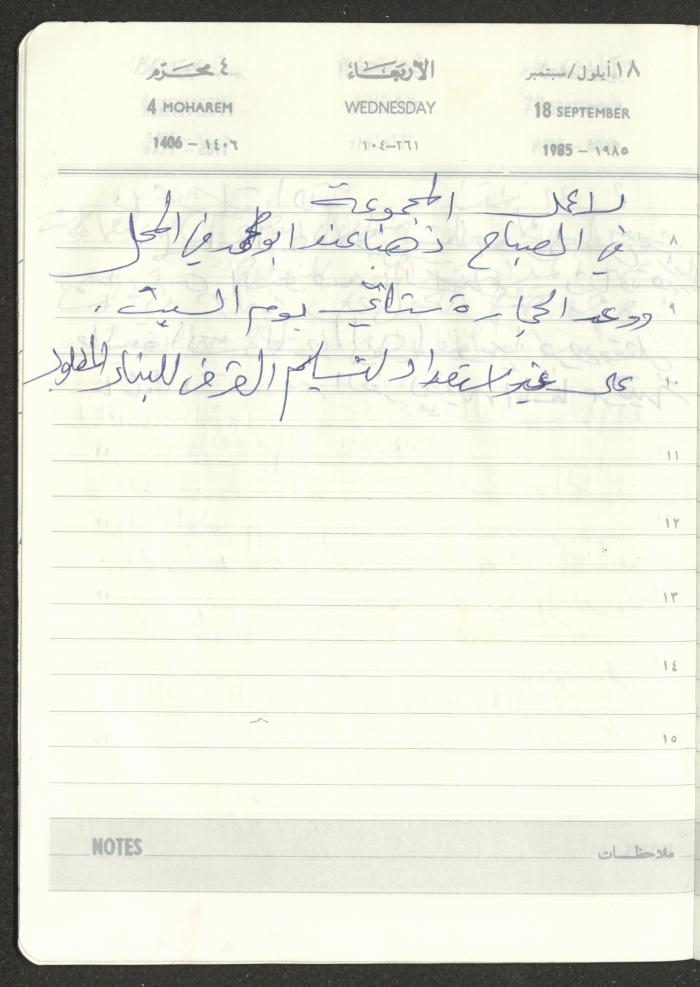 ١٨ أيلول/سبتمبر الأربعاء ٤ محرم
18 SEPTEMBER WEDNESDAY 4 MOHAREM
1985 – ١٩٨٥ ١٠٤–٢٦١ 1406 – ١٤٠٦
لا عمل المجموعة
في الصباح ذهبنا عند ابو محمد في المحل
٨
ووعد الحجارة ستأتي يوم السبت .
٩
على غير استعداد لتسليم القرض للبناء المطلوب
١٠
١١
١٢
١٣
١٤
١٥
NOTES ملاحظات